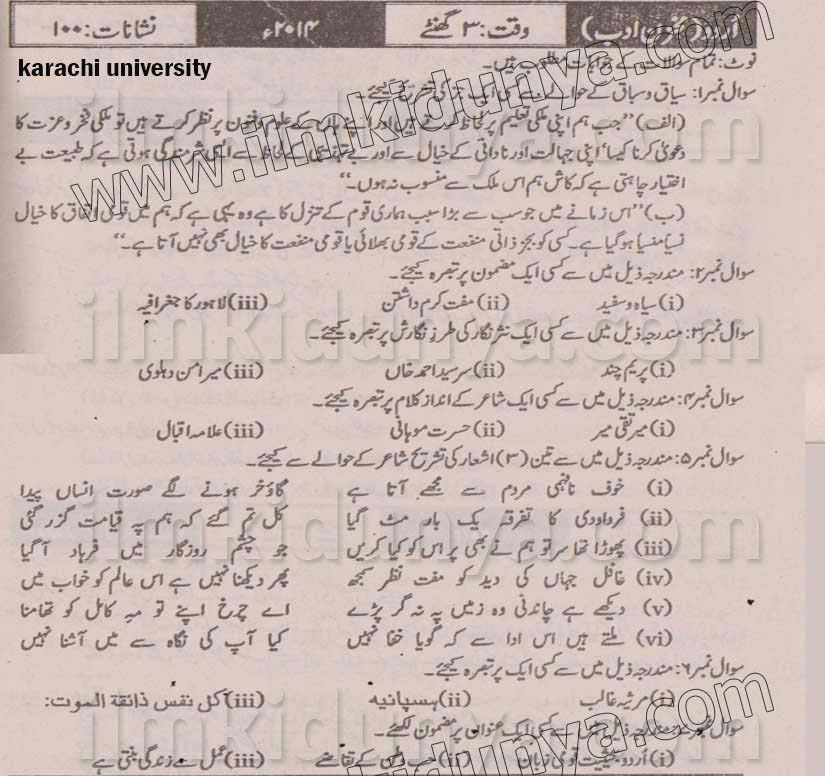 اردو ( ادب) ۲۰۱۴ء وقت: ۳ گھنٹے نشانات: ۱۰۰
karachi university
نوٹ: تمام سوالات کے جوابات مطلوب ہیں۔
سوال نمبر۱: سیاق و سباق کے حوالے سے کسی ایک جز کی تشریح کیجئے۔
(الف) ”جب ہم اپنی ملکی تعلیم پر لحاظ کرتے ہیں اور اپنے ہاں کے علوم و فنون پر نظر کرتے ہیں تو ملکی فخر و عزت کا
دعویٰ کرنا کیسا‘ اپنی جہالت اور نادانی کے خیال سے اور بے تہذیبی کے لحاظ سے ایسی شرمندگی ہوتی ہے کہ طبیعت بے
اختیار چاہتی ہے کہ کاش ہم اس ملک سے منسوب نہ ہوں۔“
(ب) ”اس زمانے میں جو سب سے بڑا سبب ہماری قوم کے تنزل کا ہے وہ یہی ہے کہ ہم میں قومی اتفاق کا خیال
نسیاً منسیا ہو گیا ہے۔ کسی کو بجز ذاتی منفعت کے قومی بھلائی یا قومی منفعت کا خیال بھی نہیں آتا ہے۔“
سوال نمبر۲: مندرجہ ذیل میں سے کسی ایک مضمون پر تبصرہ کیجئے۔
(i) سیاہ و سفید (ii) مفت کرم داشتن (iii) لاہور کا جغرافیہ
سوال نمبر۳: مندرجہ ذیل میں سے کسی ایک نثر نگار کی طرز نگارش پر تبصرہ کیجئے۔
(i) پریم چند (ii) سرسید احمد خاں (iii) میر امن دہلوی
سوال نمبر۴: مندرجہ ذیل میں سے کسی ایک شاعر کے انداز کلام پر تبصرہ کیجئے۔
(i) میر تقی میر (ii) حسرت موہانی (iii) علامہ اقبال
سوال نمبر۵: مندرجہ ذیل میں سے تین (۳) اشعار کی تشریح شاعر کے حوالے سے کیجئے۔
(i) خوف نافہمی مردم سے مجھے آتا ہے گاؤ خر ہونے لگے صورت انساں پیدا
(ii) فردا و دی کا تفرقہ یک بار مٹ گیا کل تم گئے کہ ہم پہ قیامت گزر گئی
(iii) پھوڑا تھا سر تو ہم نے بھی پر اس کو کیا کریں جو چشم روزگار میں فرہاد آ گیا
(iv) غافل جہاں کی دید کو مفت نظر سمجھ پھر دیکھنا نہیں ہے اس عالم کو خواب میں
(v) دیکھے ہے چاندنی وہ زمیں پہ نہ گر پڑے اے چرخ اپنے تو مہ کامل کو تھامنا
(vi) ملتے ہیں اس ادا سے کہ گویا خفا نہیں کیا آپ کی نگاہ سے میں آشنا نہیں
سوال نمبر۶: مندرجہ ذیل میں سے کسی ایک پر تبصرہ کیجئے۔
(i) مرثیہ غالب (ii) ہسپانیہ (iii) کل نفس ذائقة الموت:
سوال نمبر مندرجہ ذیل میں سے کسی ایک عنوان پر مضمون لکھئے۔
(i) اُردو بحیثیت قومی زبان (ii) حب وطن کے تقاضے (iii) عمل سے زندگی بنتی ہے
www.ilmkidunya.com
ilmkidunya.com
ilmkidunya.com
ilmkidunya.com
ilmkidunya.com